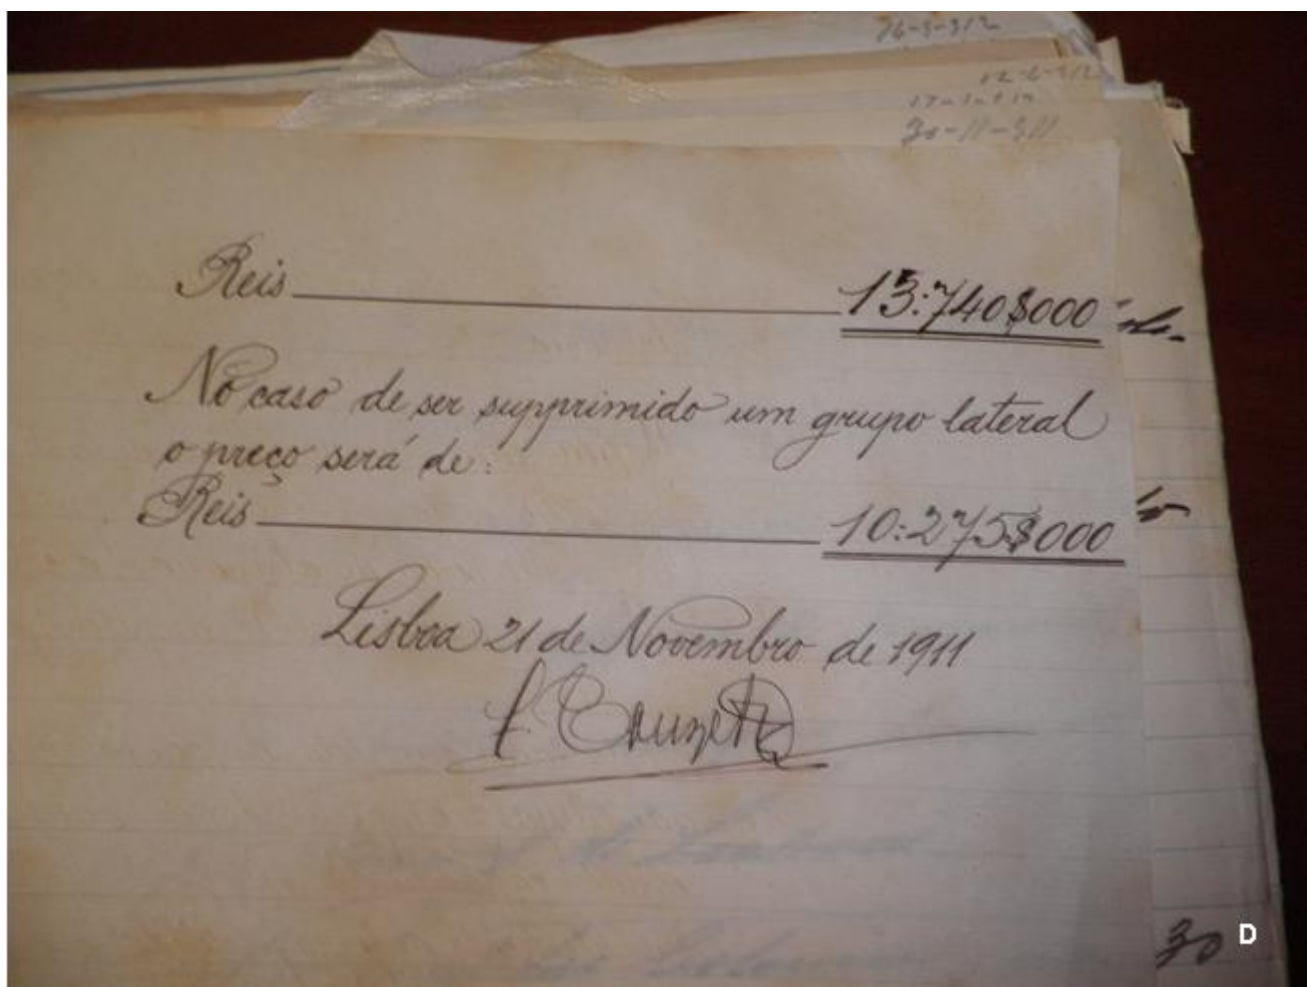 30-11-911
Reis 13:740$000
No caso de ser supprimido um grupo lateral
o preço será de:
Reis 10:275$000
Lisboa 21 de Novembro de 1911
30
D